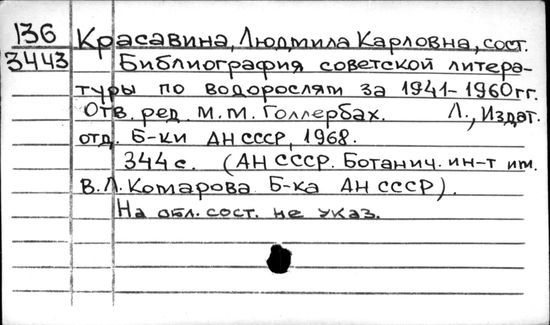 136 Красавина, Людмила Карловна, сост.
3443 Библиография советской литера-
туры по водорослям за 1941-1960 гг.
Отв. ред. М.М. Голлербах. Л., Издат.
отд. Б-ки АН СССР, 1968.
344 с. (АН СССР. Ботанич. ин-т им.
В.Л. Комарова Б-ка АН СССР).
На обл. сост. не указ.